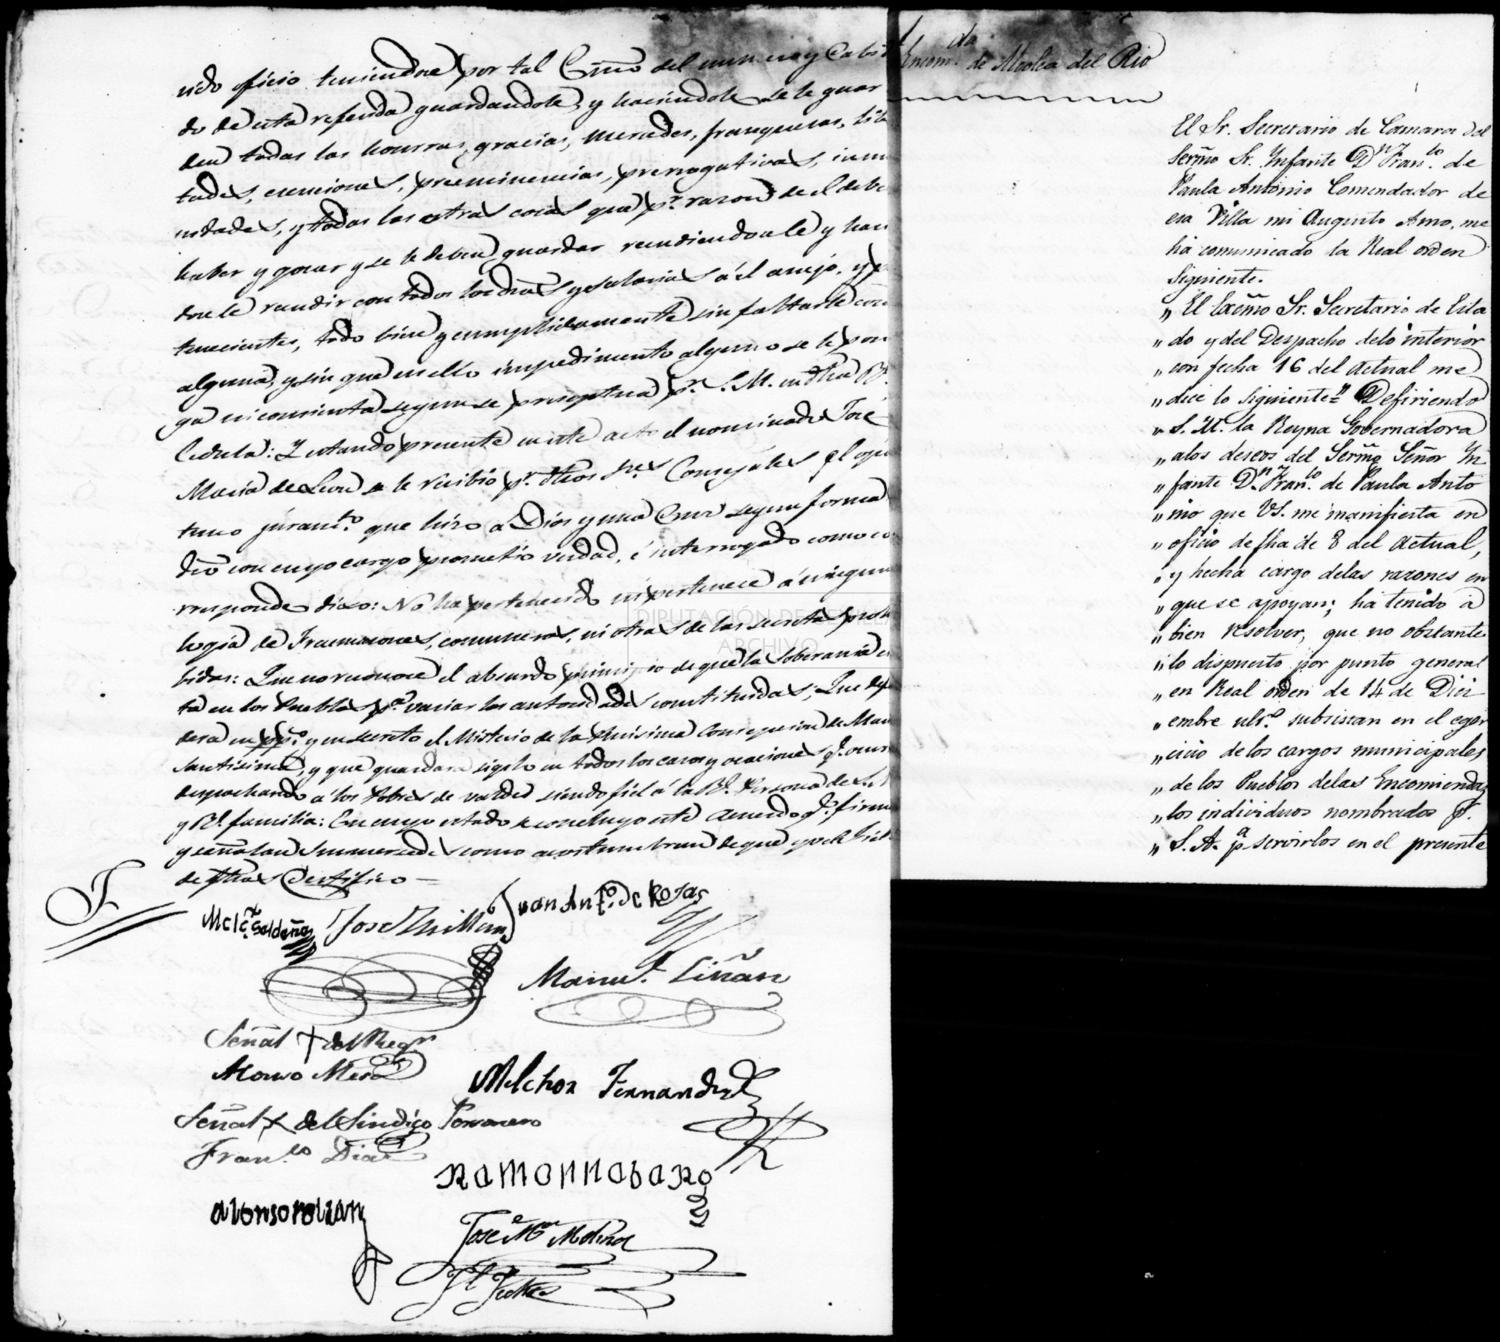 vido oficio teniendole por tal Ess.no del numero y Cabil
do de esta referida guardandole, y haciendole se le guar
den todas las honrras, gracias, mercedes, franquezas, liber
tades, exenciones, preeminencias, prerrogativas, inmu
nidades, y todas las otras cosas que p.r razon de el debe
haber y gozar y se le deben guardar recudiendole y hacien
dole recudir con todos los dros y salarios a él anejo, y per
tenecientes, todo bien y cumplidamente sin faltarle cosa
alguna, y sin que en ello impedimento alguno se le pon
ga ni consienta segun se preceptua p.r S.M. en dha R.l
Cedula: Y estando presente en este acto el nominado José
Maria de Leon se le recibio p.r dhos S.res Concejales el opor
tuno juram.to que hizo a Dios y una Cruz segun forma
dro con cuyo cargo prometió verdad, é interrogado como co
rresponde dixo: No ha pertenecido ni pertenece á ninguna
logia de Fracmasones, comuneros, ni otras de las secretas prohi
bidas: Que no reconoce el absurdo principio de que la Soberania es
ta en los Pueblos p.a variar las autoridades constituidas; Que defen
dera en pp.co y en secreto el Misterio de la Purisima Concepcion de Maria
Santisima, y que guardara sigilo en todos los casos y ocasiones q.e ocurran
despachando á los Pobres de valde siendo fiel á la R.l Persona de S.M.
y R.l familia: En cuyo estado se concluyo este Acuerdo q.e firman
y señalan Sus mercedes como acostumbran de que yo el Fiel
de fhas Certifico
Melc.r Saldeña José Millan Juan Ant.o de Rosas
Manu.l Liñan
Señal + del Reg.r
Alonso Mero
Melchor Fernandez
Señal + del Sindico Personero
Fran.co Diaz
Ramon nabaRo
alonso roldan
José M.a Molina
F.l Fechos
DIPUTACIÓN DE SEVILLA
ARCHIVO
Encom.da de Mocha del Rio
El Sr. Secretario de Camara del
Sermo Sr. Infante D.n Fran.co de
Paula Antonio Comendador de
esa Villa mi Augusto Amo, me
ha comunicado la Real orden
siguiente.
„ El Exmo Sr. Secretario de Esta
„ do y del Despacho delo interior
„ con fecha 16 del actual me
„ dice lo siguiente= „ Defiriendo
„ S.M. la Reyna Gobernadora
„ alos deseos del Sermo Señor In
„ fante D.n Fran.co de Paula Anto
„ nio que VS. me manifiesta en
„ oficio de fha de 8 del actual,
„ y hecha cargo delas razones en
„ que se apoyan; ha tenido á
„ bien resolver, que no obstante
„ lo dispuesto por punto general
„ en Real orden de 14 de Dici
„ embre ult.o subsistan en el eger
„ cicio delos cargos municipales
„ de los Pueblos delas Encomiendas
„ los individuos nombrados p.r
„ S.A. p.a servirlos en el presente